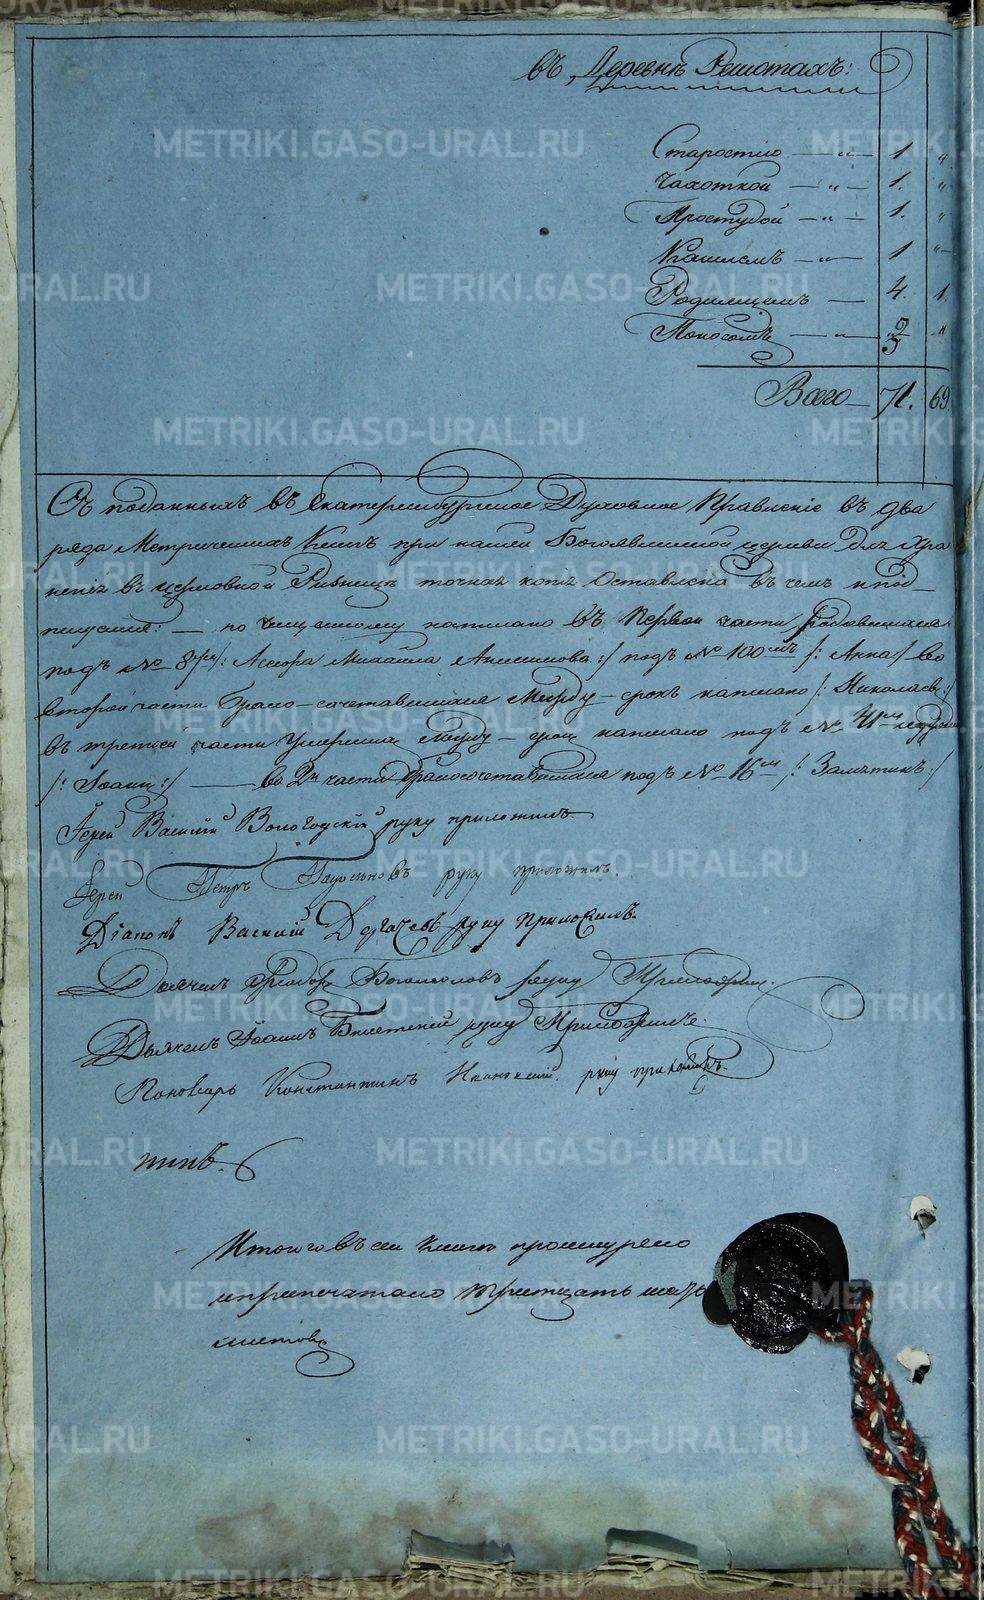 въ Деревнѣ Решотахъ:
Старостiю — „ — 1. „
Чахоткой — „ — 1. „
Простудой — „ — 1. „
Кашлемъ — „ — 1 „
Родимцемъ — 4. 1.
Поносомъ — „ —
Всего — 71. 69.
Съ поданныхъ въ Екатеринбургское Духовное Правленiе въ два
ряда Метрическихъ Книгъ при нашей Богоявленской церкви для Хра
ненiя въ церковной Ризницѣ точная копiя Оставлена въ чемъ и под_
писуемся: — по чищенному написано въ Первой части
подъ № /: Анисимова :/ подъ № 100мъ /: Анна :/ Во
второй части Брако-сочетавшихся Между-строкъ написано /: Николаевъ :/
въ третьей части Умершихъ Между-строкъ написано подъ № 41мъ
/: Iоаннъ :/ — во 2й части Бракосочетавшихся подъ № 16мъ /: Замятинъ :/
Iерей Василiй Вологодскiй руку приложилъ
Iерей Петръ руку приложилъ.
Дiаконъ Василiй Дерачевъ руку Приложилъ.
Дьячекъ Богомоловъ руку Приложилъ.
Дьячекъ Iоаннъ руку Приложилъ.
Пономарь Константинъ руку приложилъ.
Итого въ сей книгѣ прошнурено
и припечатано Тритцать
листовъ
METRIKI.GASO-URAL.RU